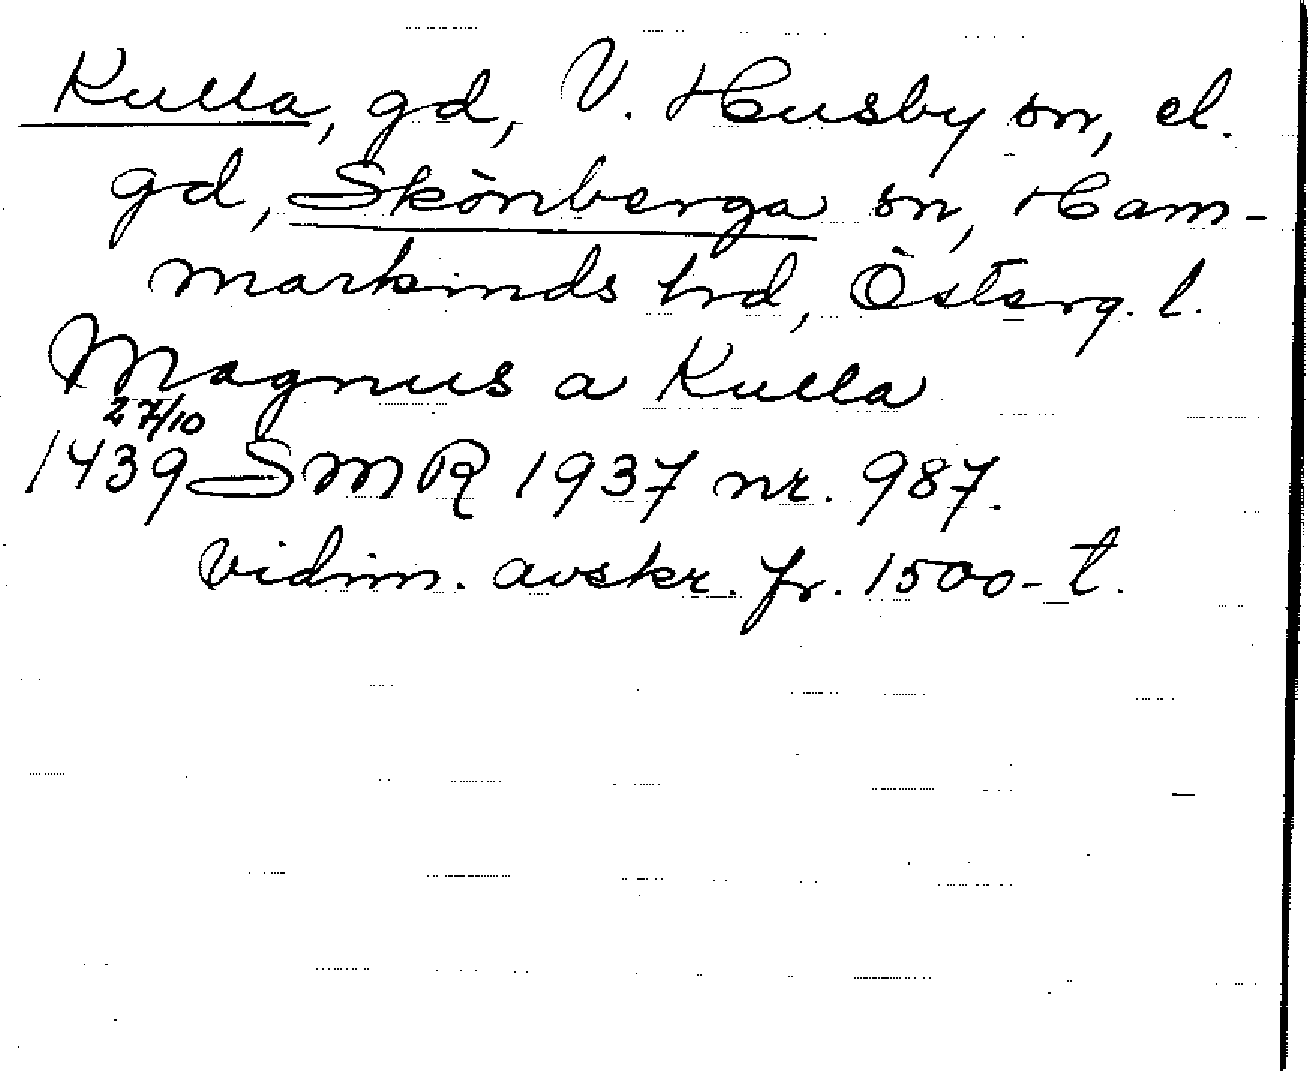 Kulla, gd, V. Husby sn, el.
gd, Skönberga sn, Ham-
markinds hrd, Österg. l.
Magnus a Kulla
27/10
1439 SMR 1937 nr. 987.
vidim. avskr. fr. 1500-t.